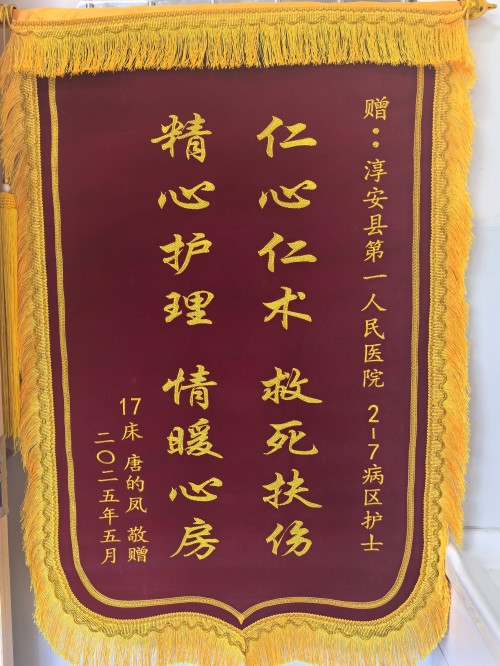 赠：淳安县第一人民医院 2-7病区护士
仁心仁术 救死扶伤
精心护理 情暖心房
17床 唐的凤 敬赠
二〇二五年五月